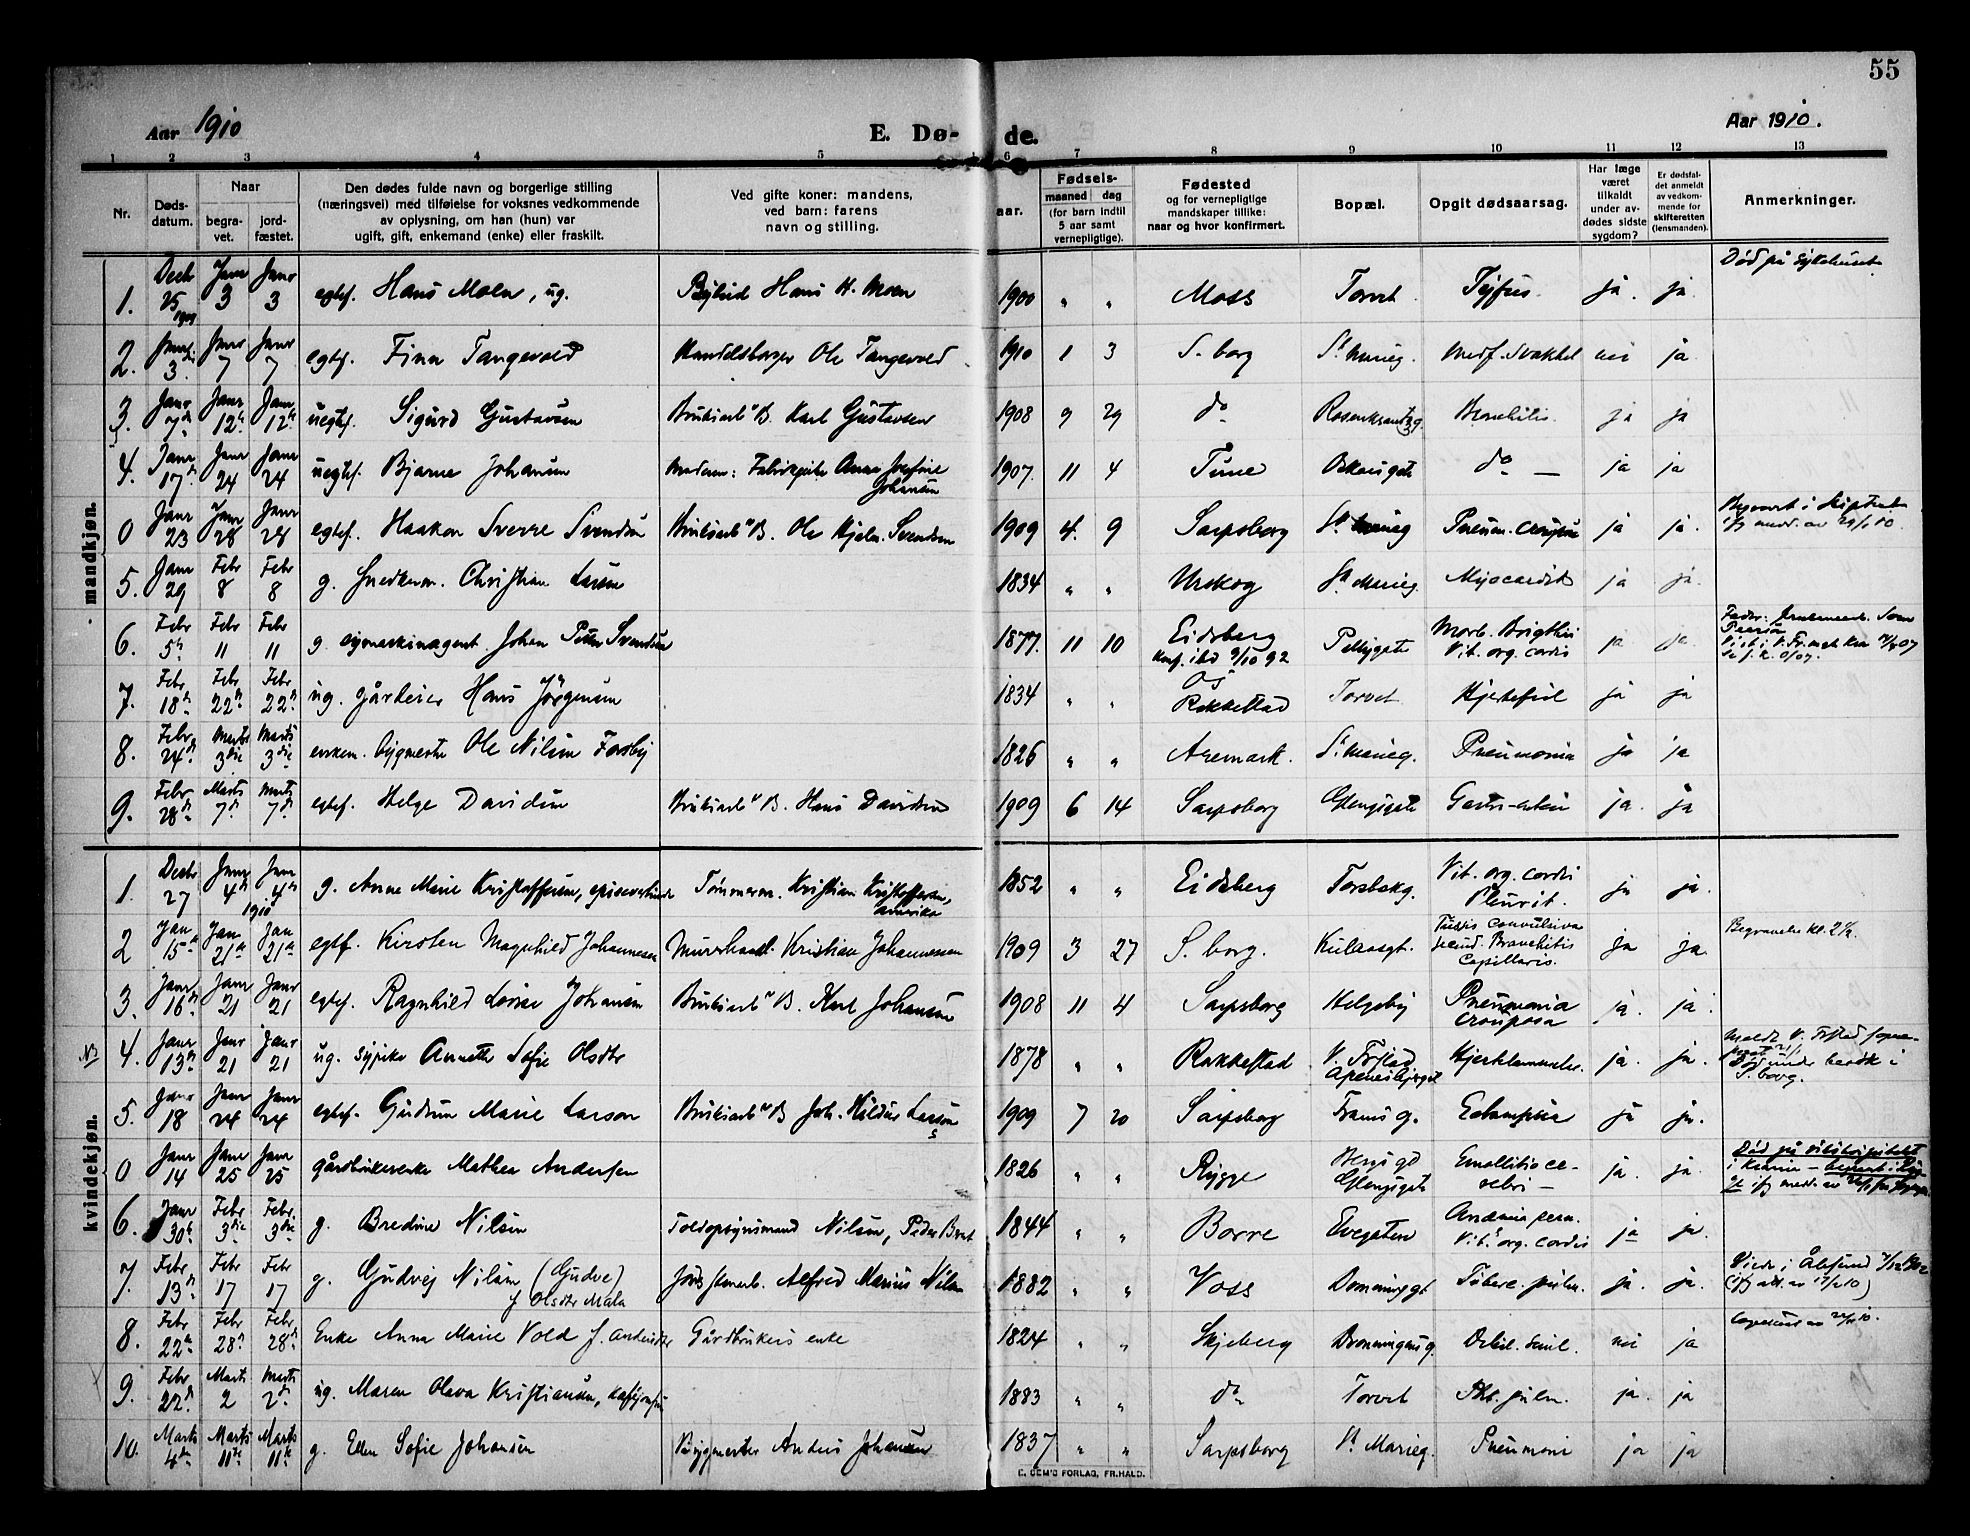 55
Aar 1910
E. Dø-
de.
Aar 1910.
1 2 3 4 5 6 7 8 9 10 11 12 13
Nr.
Døds-
datum.
Naar
begra-
vet.
jord-
fæstet.
Den dødes fulde navn og borgerlige stilling
(næringsvei) med tilføielse for voksnes vedkommende
av oplysning, om han (hun) var
ugift, gift, enkemand (enke) eller fraskilt.
Ved gifte koner: mandens,
ved barn: farens
navn og stilling.
aar.
Fødsels-
maaned dag
(for barn indtil
5 aar samt
vernepligtige).
Fødested
og for vernepligtige
mandskaper tillike:
naar og hvor konfirmert.
Bopæl.
Opgit dødsaarsag.
Har læge
været
tilkaldt
under av-
dødes sidste
sygdom?
Er dødsfal-
det anmeldt
av vedkom-
mende for
skifteretten
(lensmanden).
Anmerkninger.
mandkjøn.
1. Decbr 25 1909 Janr 3 Janr 3 egtef. Hans Moen, ug. Hans H. Moen 1900 " " Moss Torvet Tyfus. ja. ja. Død på sykehuset
2. 3 Janr 7 Janr 7 egtef. Finn Tangevold Handelsborger Ole Tangevold 1910 1 3 S.borg St Marieg. Medf. Svakhet nei ja
3. Janr 7de Janr 12te Janr 12te uegtef. Sigurd Gustavsen Bruksarb. B. Karl Gustavsen 1908 9 29 do Rosenkrantzg. Bronchitis ja ja
4. Janr 17de Janr 24 Janr 24 uegtef. Bjarne Johansen Moderen: Anna Josefine
Johansen 1907. 11 4 Tune Oskarsgate do — ja ja
0 Janr 23 Janr 28 Janr 28 egtef. Haakon Sverre Svendsen Bruksarb. B. Ole Hjelm. Svendsen 1909 4. 9 Sarpsborg St Marieg Pneum. croupøs ja ja. Begravet i Skiptvet
ifg medd. av 29/1 10.
5. Janr 29 Febr 8 Febr 8 g. Snedkerm. Christian Larsen 1834 " " Urskog St. Marieg. Myocardit ja ja.
6. Febr 5te Febr 11 Febr 11 g. symaskinagent Johan Petter Svendsen 1877. 11 10 Eidsberg
Konf. ibd 9/10 92 Pellygate Morb. Brigthii
Vit. org. cordis ja ja.
7. Febr 18de Febr 22de Febr 22de ug. gårdeier Hans Jörgensen 1834 " " Rakkestad Torvet Hjertefeil ja ja
8. Febr 24de Marts 3die Marts 3die enkem. bygmester Ole Nilsen Torsby 1826 " " Aremark. St. Marieg. Pneumonia ja ja
9. Febr 28de Marts 7de Marts 7de egtef. Helge Davidsen Bruksarb. B. Hans Davidsen 1909 6 14 Sarpsborg Glengsgate ja. ja
kvindekjøn.
1. Decbr 27 Janr 4de 1910 Janr 4de g. Anne Marie Kristoffersen, Tømmerm. Kristian Kristoffersen,
Amerika 1852 " " Eidsberg Torsbekg. Vit. org. cordis
Pleurit. ja ja.
2 Jan 15de Jan 21de Jan 21de egtef. Kirsten Magnhild Johannesen Murerhaandl. Kristian Johannessen 1909 3 27 S.borg. Kulåsgt. Tussis convulsiva
secund. Bronchitis
Capillaris. ja ja. Begravelse kl. 2½.
3. Janr 16de Janr 21 Janr 21 egtef. Ragnhild Lovise Johansen Bruksarb. B. Karl Johansen 1908 11 4 Sarpsborg Helgeby Pneumonia
Crouposa ja. ja.
4. Janr 13de Janr 21 Janr 21 ug. sypike Annette Sofie Olsdtr 1878 " " Rakkestad V. Frstad
Apenesbjerget Hjertelammelse. ja. ja. Død under besøk i
S.borg.
5. Janr 18 Janr 24 Janr 24 egtef. Gudrun Marie Larson Bruksarb. B Joh. Hildus Larson 1909 7 20 Sarpsborg Framsg. Eclampsia ja ja.
0 Janr 14 Janr 25 Janr 25 gårdbrukerenke Mathea Andersen 1826 " " Rygge
Glengsgate Emollitio ce-
rebri — ja. ja.
6. Janr 30te Febr 3die Febr. 3die g. Bredine Nilsen Toldopsynsmand Nilsen, 1844 " " Borre Evegaten Anæmia pern.
Vit. org. cordis ja ja.
7. Febr 13de Febr 17 Febr 17 g. Gudvej Nilsen (Gudve)
f Olsdtr Mala Alfred Marius Nilsen 1882 " " Voss Dronningsgt Tuberc. pulm. ja. ja. Viede i Ålesund
8. Febr 22de Febr 28de Febr. 28de Enke Anna Marie Vold f. Andersdtr Gårdbrukers enke 1824 " " Skjeberg Dronningensg. Debil. senil. nei ja
9. Febr 22de Marts 2 Marts 2de ug. Maren Olava Kristiansen, 1883 " " do Torvet Pht. pulm. ja. ja
10. Marts 4de Marts 11te Marts 11te g. Ellen Sofie Johansen Bygmester Anders Johansen 1837 " " Sarpsborg St. Marieg. Pneumoni ja ja
E. SEM'S FORLAG, FR.HALD.